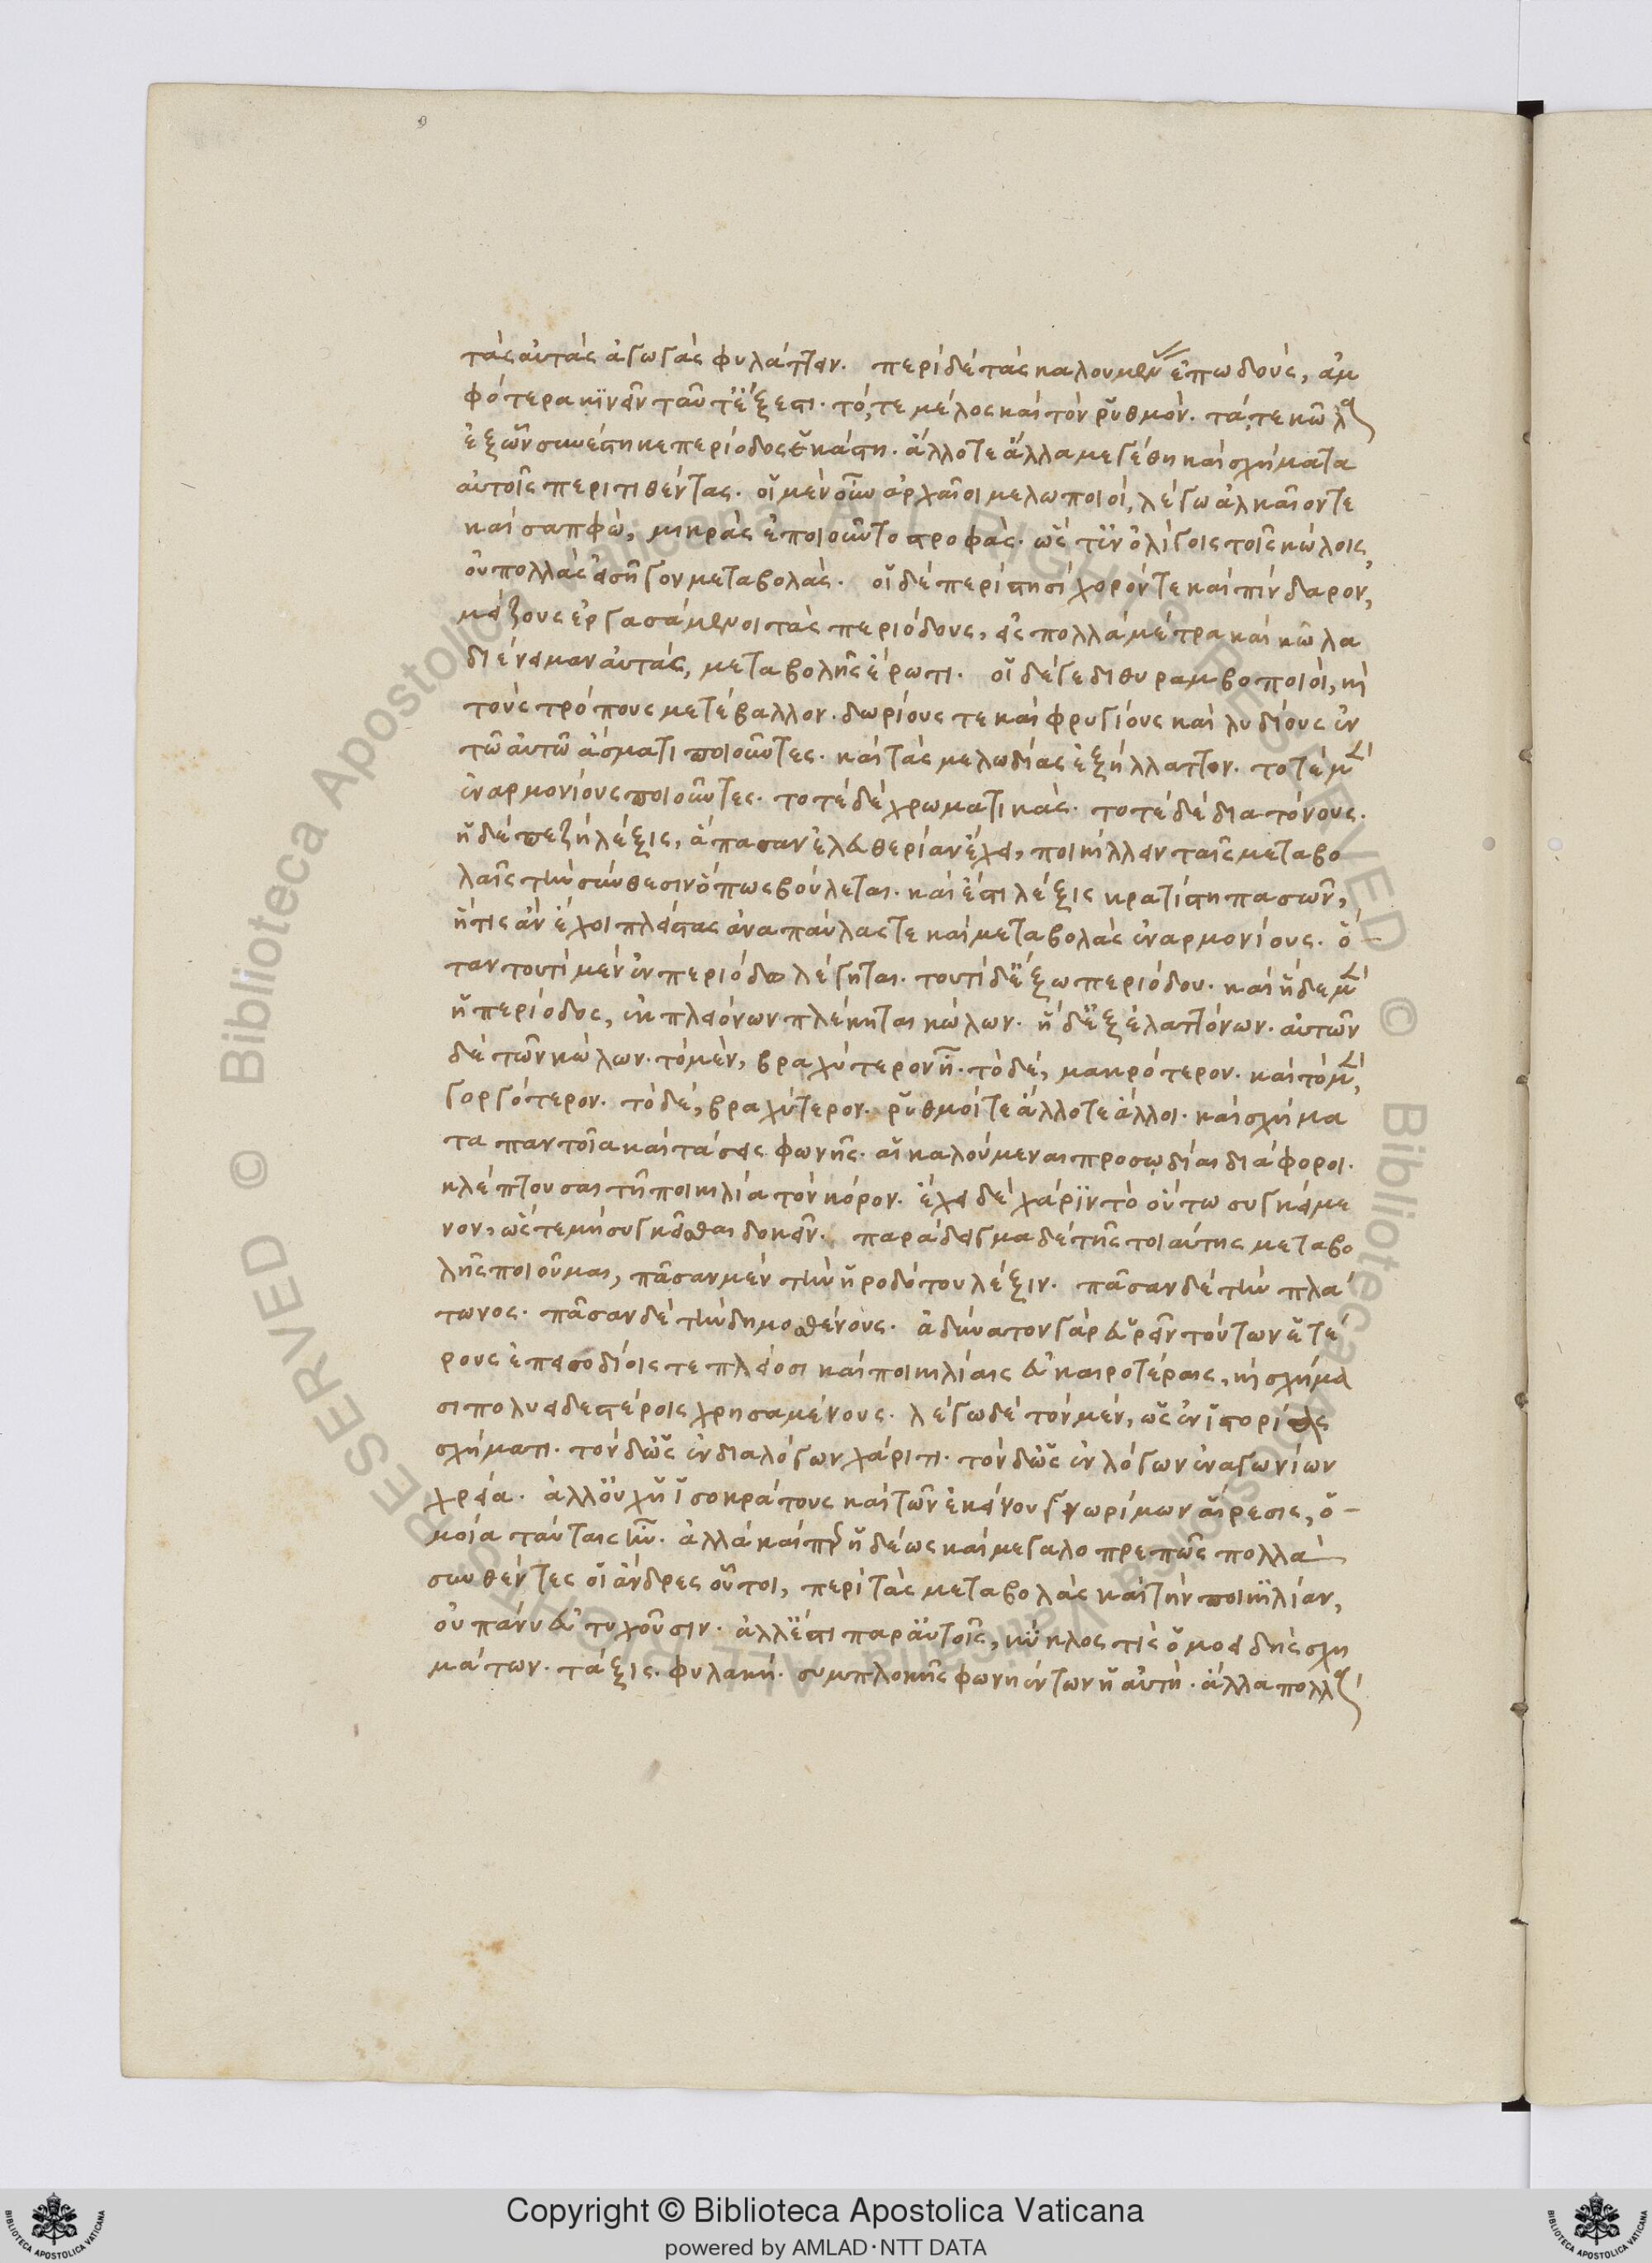 τὰς αὐτὰς ἀγωγὰς φυλάττειν. περὶ δὲ τὰς καλουμένας ἐπωδοὺς, ἀμ
φότερα κινεῖν ταῦτ' ἔξεστι. τό, τε μέλος καὶ τὸν ῥυθμόν. τά, τε κῶλα
ἐξ ὧν συνέστηκε περίοδος ἑκάστη. ἄλλοτε ἄλλα μεγέθη καὶ σχήματα
αὐτοῖς περιτιθέντας. οἱ μὲν οὖν ἀρχαῖοι μελωποιοί, λέγω ἀλκαῖόν τε
καὶ σαπφὼ, μικρὰς ἐποιοῦντο στροφάς. ὥστ' ἐν ὀλίγοις τοῖς κώλοις,
οὐ πολλὰς εἰσῆγον μεταβολάς. οἱ δὲ περὶ στησίχορόν τε καὶ πίνδαρον,
μείζους ἐργασάμενοι τὰς περιόδους, εἰς πολλὰ μέτρα καὶ κῶλα
διένειμαν αὐτὰς, μεταβολῆς ἔρωτι. οἱ δέ γε διθυραμβοποιοὶ, καὶ
τοὺς τρόπους μετέβαλλον. δωρίους τε καὶ φρυγίους καὶ λυδίους ἐν
τῶ αὐτῶ ἄσματι ποιοῦντες. καὶ τὰς μελωδίας ἐξήλλαττον. τοτὲ μὲν
ἐναρμονίους ποιοῦντες. τοτὲ δὲ χρωματικάς. τοτὲ δὲ διατόνους.
ἡ δὲ πεζὴ λέξις, ἅπασαν ἐλευθερίαν ἔχει, ποικίλλειν ταῖς μεταβο
λαῖς τὴν σύνθεσιν ὅπως βούλεται. καὶ ἔστι λέξις κρατίστη πασῶν,
ἥτις ἂν ἔχοι πλείστας ἀναπαύλας τε καὶ μεταβολὰς ἐναρμονίους. ὅ-
ταν τουτὶ μὲν ἐν περιόδω λέγηται. τουτὶ δ' ἔξω περιόδου. καὶ ἥδε μὲν
ἡ περίοδος, ἐκ πλειόνων πλέκηται κώλων. ἡ δ' ἐξ ἐλαττόνων. αὐτῶν
δὲ τῶν κώλων. τὸ μὲν, βραχύτερον ἦ. τὸ δὲ, μακρότερον. καὶ τὸ μὲν,
γοργότερον. τὸ δὲ, βραχύτερον. ῥυθμοί τε ἄλλοτε ἄλλοι. καὶ σχήμα
τα παντοῖα καὶ τάσεις φωνῆς. αἱ καλούμεναι προσῳδίαι διάφοροι.
κλέπτουσαι τῆ ποικιλία τὸν κόρον. ἔχει δὲ χάριν τὸ οὕτω συγκείμε
νον, ὥστε μὴ συγκεῖσθαι δοκεῖν. παράδειγμα δὲ τῆς τοιαύτης μεταβο
λῆς ποιοῦμαι, πᾶσαν μὲν τὴν ἡροδότου λέξιν. πᾶσαν δὲ τὴν πλά
τωνος. πᾶσαν δὲ τὴν δημοσθένους. ἀδύνατον γὰρ εὑρεῖν τούτων ἑτέ
ρους ἐπεισοδίοις τε πλείοσι καὶ ποικιλίαις εὐκαιροτέραις, καὶ σχήμα
σι πολυειδεστέροις χρησαμένους. λέγω δὲ τὸν μὲν, ὡς ἐν ἱστορίας
σχήματι. τὸν δ' ὡς ἐν διαλόγων χάριτι. τὸν δ' ὡς ἐν λόγων ἐναγωνίων
χρεία. ἀλλ' οὐχ ἡ ἰσοκράτους καὶ τῶν ἐκείνου γνωρίμων αἵρεσις, ὁ-
μοία ταύταις ἦν. ἀλλὰ καίπερ ἡδέως καὶ μεγαλοπρεπῶς πολλὰ
συνθέντες οἱ ἄνδρες οὗτοι, περὶ τὰς μεταβολὰς καὶ τὴν ποικιλίαν,
οὐ πάνυ εὐτυχοῦσιν. ἀλλ' ἔστι παρ' αὐτοῖς, κύκλος τις ὁμοειδὴς σχη
μάτων. τάξις. φυλακή. συμπλοκῆς φωνηέντων ἡ αὐτή. ἄλλα πολλὰ